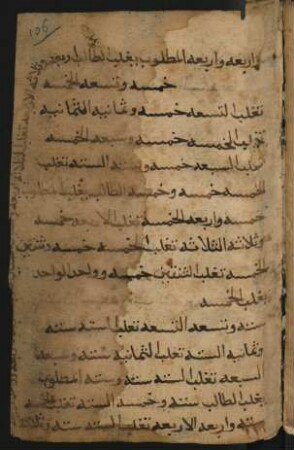 106
واربعه واربعه المطلوب يغلب الطالب اربعه
خمسه وتسعه الخمسه
تغلب التسعه خمسه وثمانيه الثمانيه
تغلب الخمسه خمسه وسبعه الخمسه
تغلب السبعه خمسه وسته السته تغلب
الخمسه خمسه وخمسه الطالب يغلب المطلوب
خمسه واربعه الخمسه تغلب الاربعه خمسه
وثلاثه الثلاثه تغلب الخمسه خمسه وثنين
الخمسه تغلب الثنين خمسه وواحد الواحد
يغلب الخمسه
سته وتسعه التسعه تغلب السته سته
وثمانيه السته تغلب الثمانيه سته وسبعه
السبعه تغلب السته سته وسته المطلوب
يغلب الطالب سته وخمسه السته تغلب الخمسه
سته واربعه الاربعه تغلب السته سته وثلاثه